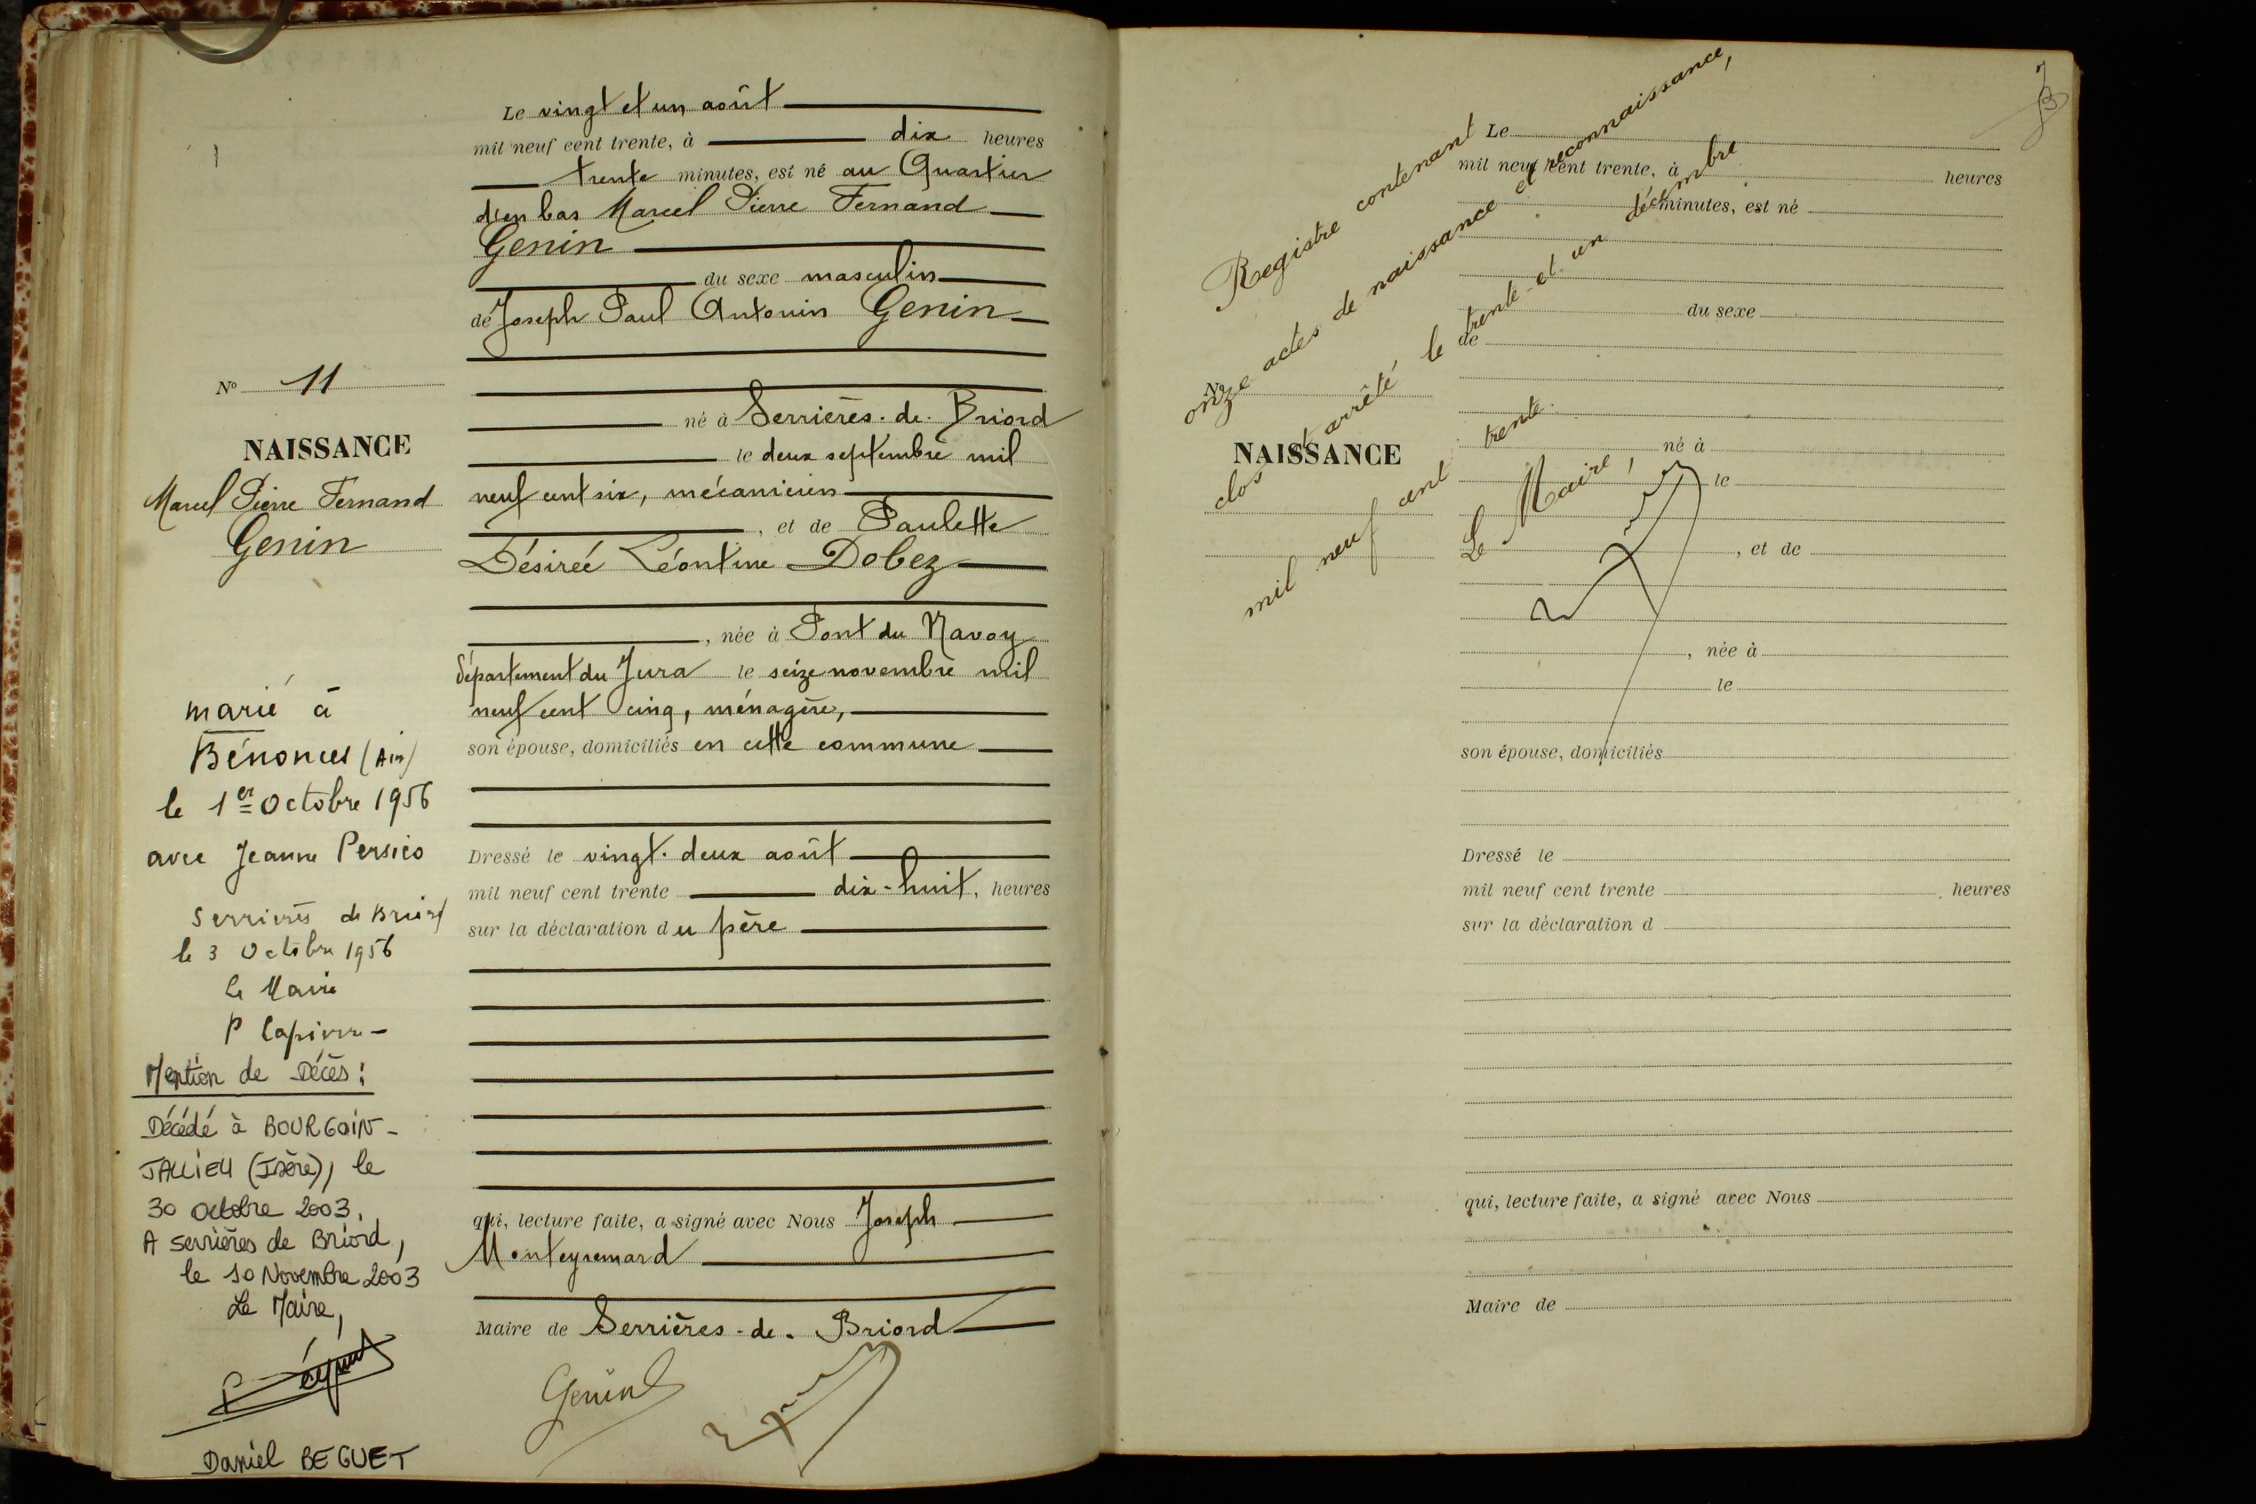 Le vingt et un août
mil neuf cent trente, à dix heures
trente minutes, est né au Quartier
d'en bas Marcel Pierre Fernand
Genin
du sexe masculin
de Joseph Paul Antonin Genin
né à Serrières-de-Briord
le deux septembre mil
neuf cent six, mécanicien
, et de Paulette
Désirée Léontine Dobez
, née à Pont du Navoy
département du Jura le seize novembre mil
neuf cent cinq, ménagère,
son épouse, domiciliés en cette commune
Dressé le vingt-deux août
mil neuf cent trente dix-huit, heures
sur la déclaration du père
qui, lecture faite, a signé avec Nous Joseph
Monteyremard
Maire de Serrières-de-Briord
Genin
N° 11
NAISSANCE
Marcel Pierre Fernand
Genin
marié à
Bénonces (Ain)
le 1er Octobre 1956
avec Jeanne Persico
Serrières de Briord
le 3 Octobre 1956
Le Maire
P Lapierre
Mention de Décès :
Décédé à BOURGOIN-
JALLIEU (Isère), le
30 octobre 2003.
A Serrières de Briord,
le 10 Novembre 2003
Le Maire,
Daniel BEGUET
Registre contenant
onze actes de naissance et reconnaissance,
clos et arrêté le trente-et-un décembre
mil neuf cent trente.
Le Maire,
Le
mil neuf cent trente, à heures
minutes, est né
du sexe
de
N°
NAISSANCE
né à
le
, et de
, née à
le
son épouse, domiciliés
Dressé le
mil neuf cent trente heures
sur la déclaration d
qui, lecture faite, a signé avec Nous
Maire de